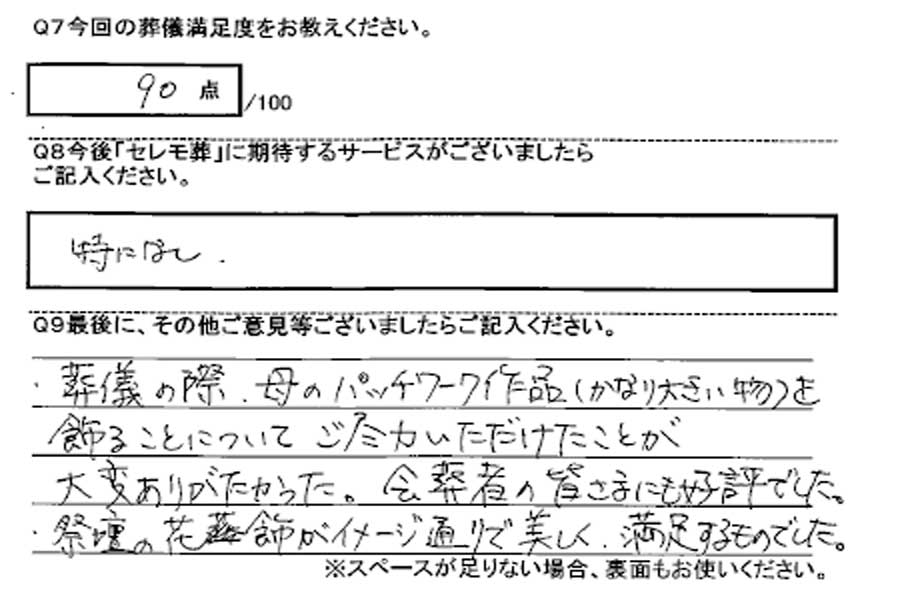 Q7今回の葬儀満足度をお教えください。
90 点 /100
Q8今後「セレモ葬」に期待するサービスがございましたら
ご記入ください。
特になし.
Q9最後に、その他ご意見等ございましたらご記入ください。
・葬儀の際、母のパッチワーク作品(かなり大きい物)を
飾ることについて ご尽力いただけたことが
大変ありがたかった。会葬者の皆さまにも好評でした。
・祭壇の花飾がイメージ通りで美しく、満足するものでした。
※スペースが足りない場合、裏面もお使いください。